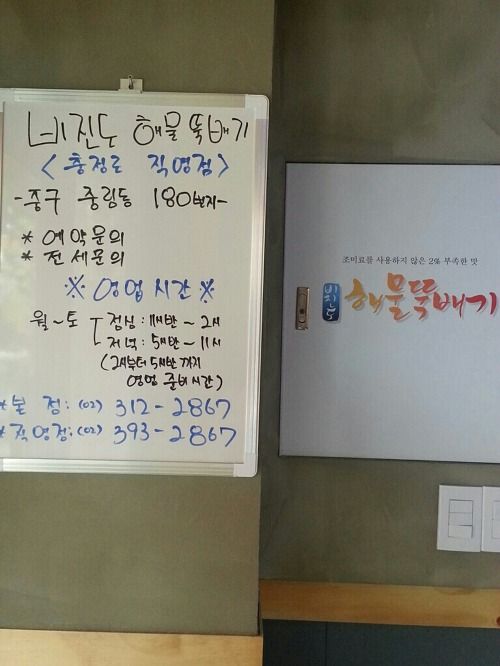 비진도 해물뚝배기
<충정로 직영점>
-중구 중림동 180번지-
* 예약문의
* 전세문의
※ 영업시간 ※
월~토 점심: 11시반~2시
저녁: 5시반~11시
(2시부터 5시반까지
영업 준비시간)
*본 점: (02) 312-2867
*직영점: (02) 393-2867
조미료를 사용하지 않은 2% 부족한 맛
비진도 해물뚝배기